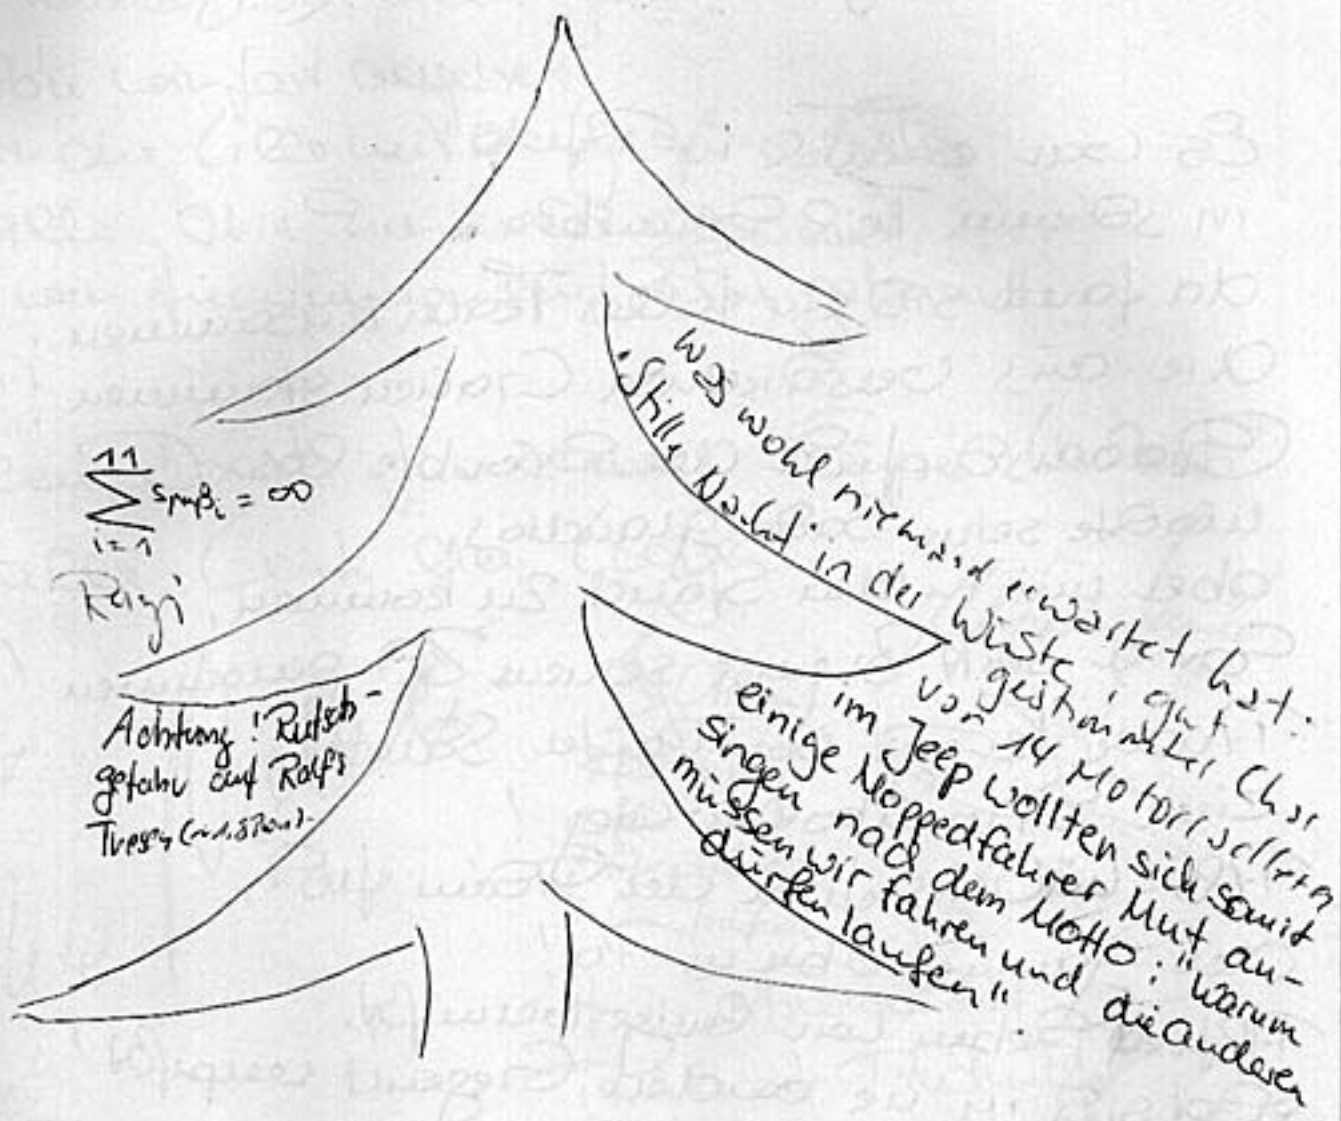 11
∑ spaßᵢ = ∞
i=1
Achtung! Rutsch-
gefahr auf Ralfs
was wohl niemand erwartet hat:
"Stille Nacht" in der Wüste, gut
gestimmter Chor
von 14 Motorrollern
im Jeep wollten sich somit
einige Moppedfahrer Mut an-
singen nach dem Motto: "Warum
müssen wir fahren und die anderen
dürfen laufen".